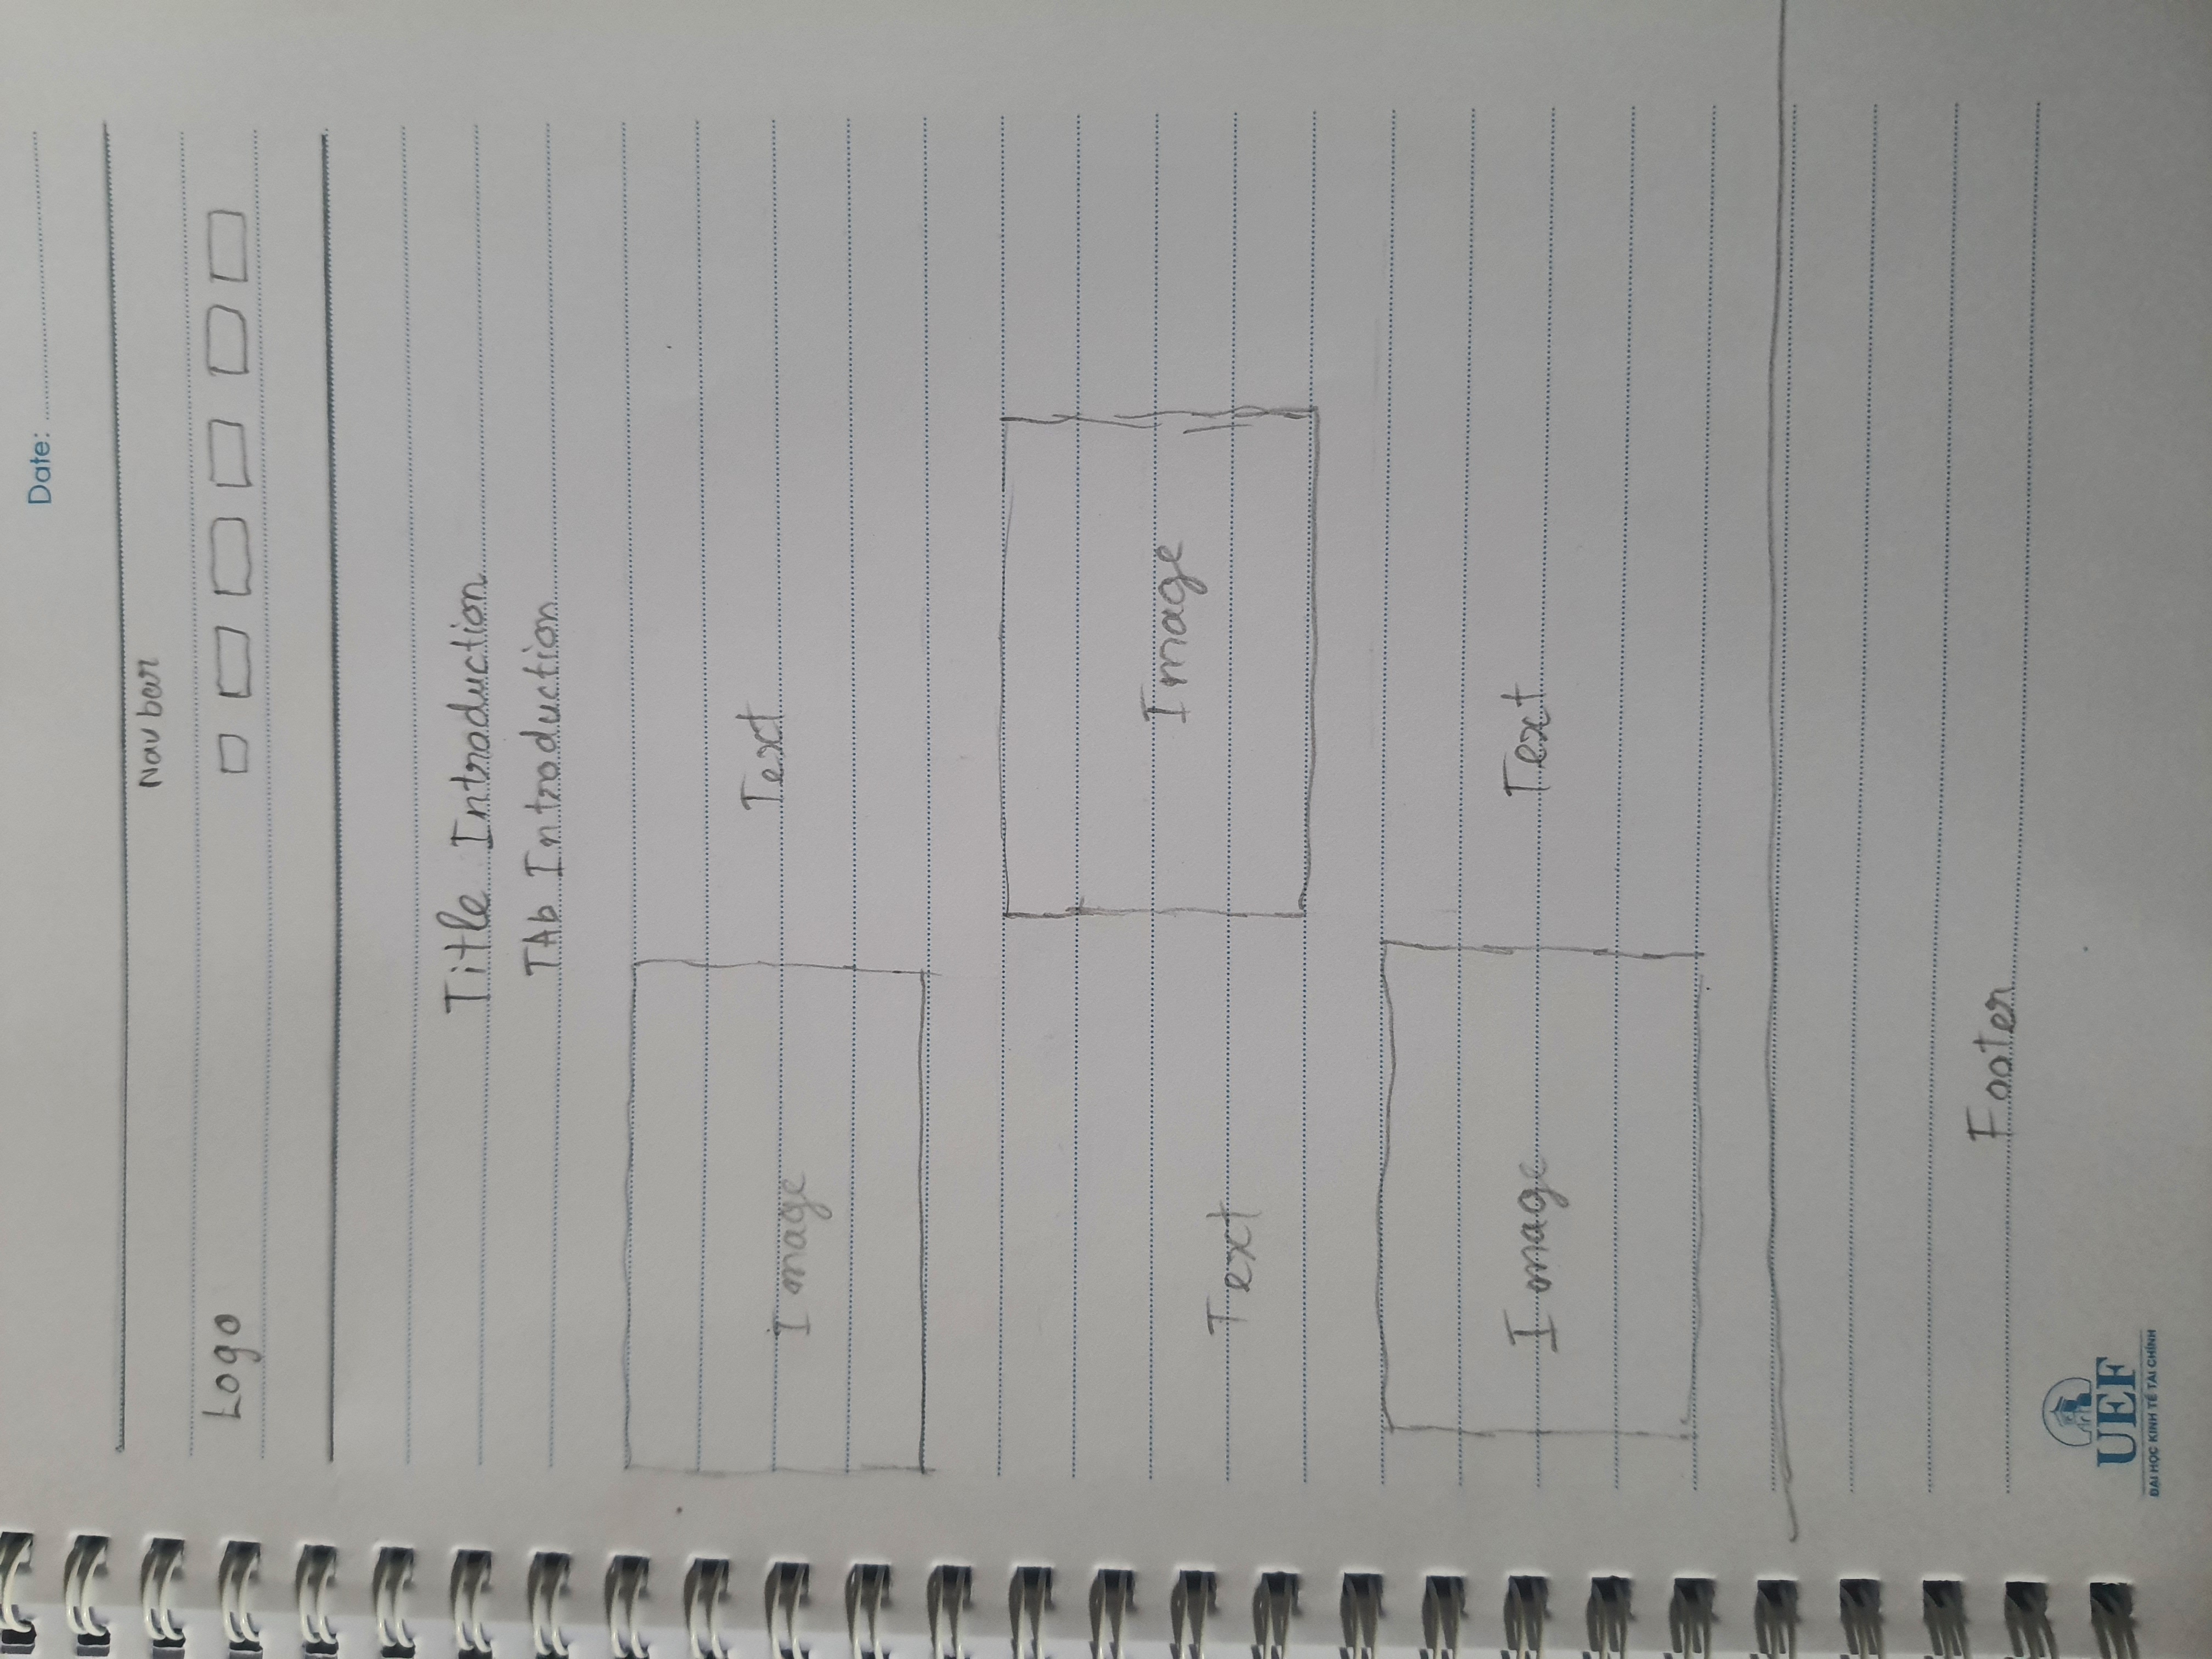 Date:
Nav bar
Logo
Title Introduction
TAb Introduction
Image
Text
Image
Text
Image
Text
Footer
UEF
ĐẠI HỌC KINH TẾ TÀI CHÍNH